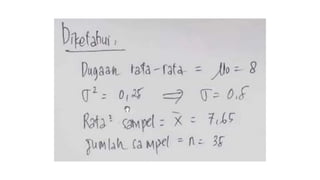 Diketahui,
Dugaan rata-rata = μ₀ = 8
σ² = 0,25 ⇒ σ = 0.5
Rata² sampel = x̄ = 7,65
Jumlah sampel = n = 35